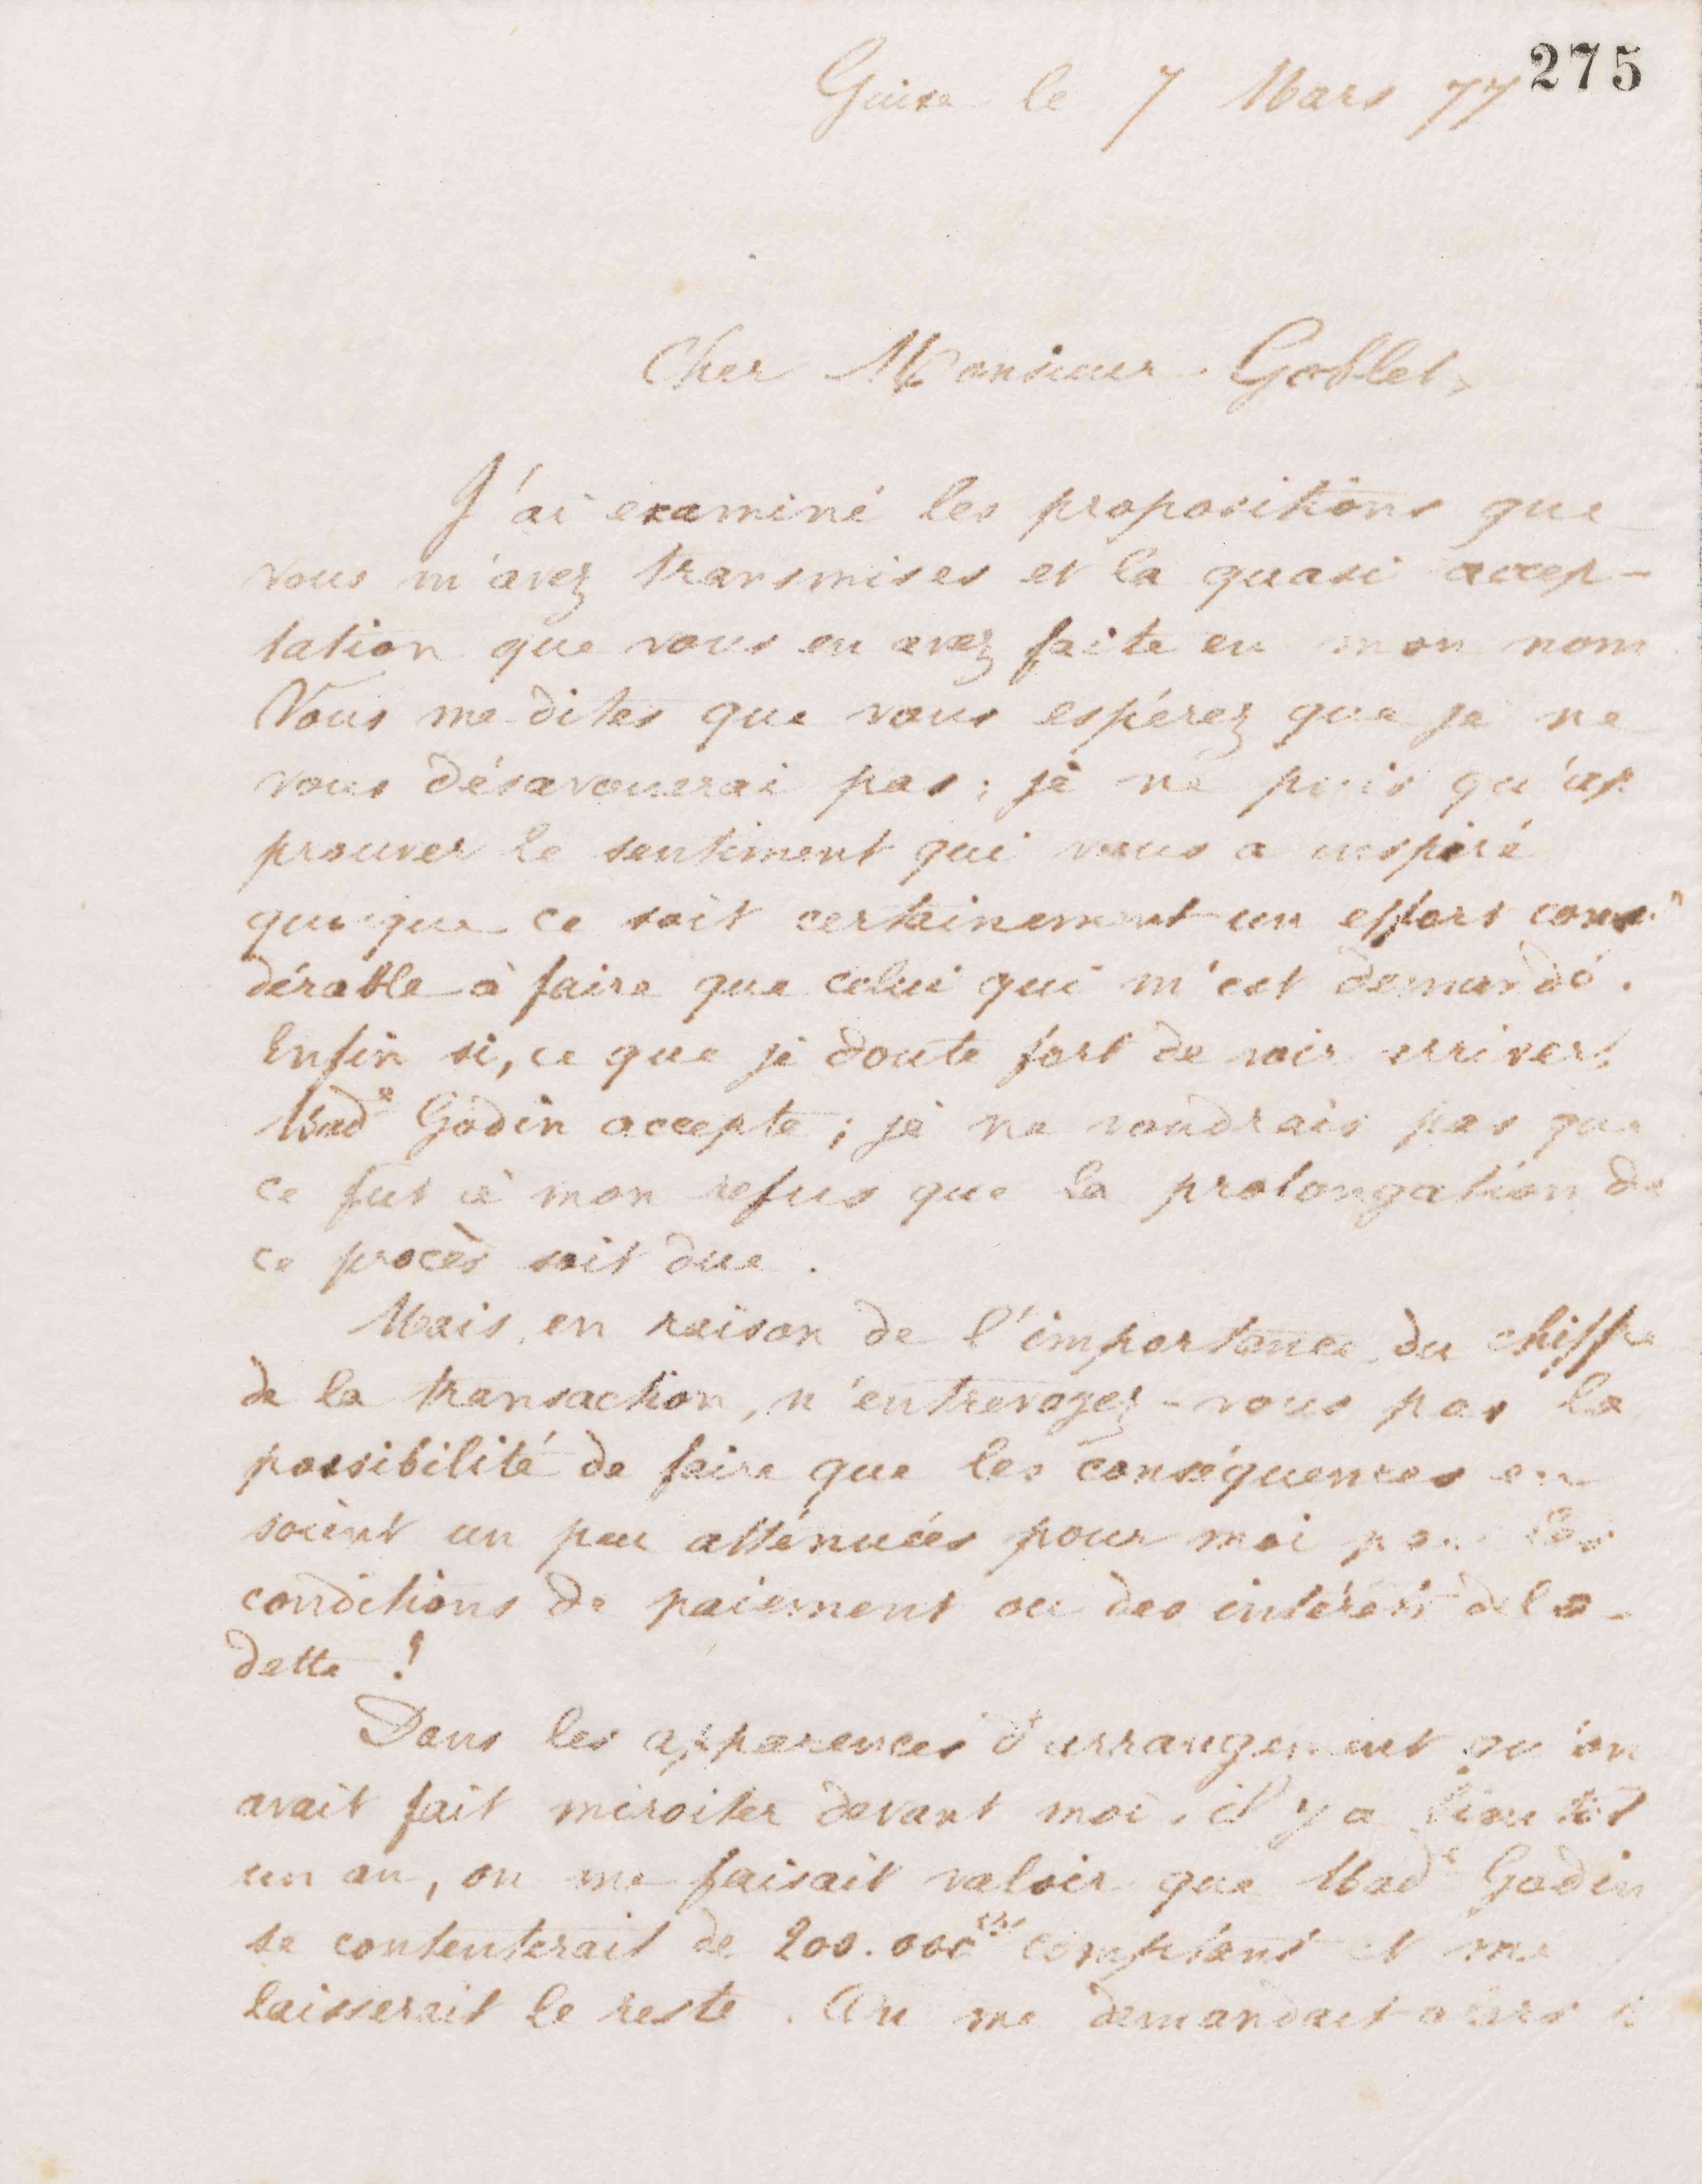 275
Guise le 7 Mars 77
Cher Monsieur Goblet,
J'ai examiné les propositions que
vous m'avez transmises et la quasi accep-
tation que vous en avez faite en mon nom
Vous me dites que vous espérez que je ne
vous désavouerai pas ; je ne puis qu'ap
prouver le sentiment qui vous a inspiré
quoique ce soit certainement un effort consi
dérable à faire que celui qui m'est demandé.
Enfin si, ce que je doute fort de voir arriver,
Mad^e Godin accepte ; je ne voudrais pas que
ce fut à mon refus que la prolongation de
ce procès soit due.
Mais, en raison de l'importance du chiffre
de la transaction, n'entrevoyez-vous pas la
possibilité de faire que les conséquences en
soient un peu atténuées pour moi par les
conditions de paiement ou des intérêts de la
dette !
Dans les apparences d'arrangement qu'on
avait fait miroiter devant moi, il y a bientôt
un an, on me faisait valoir que Mad^e Godin
se contenterait de 200.000 comptant et me
laisserait le reste. On me demandait alors